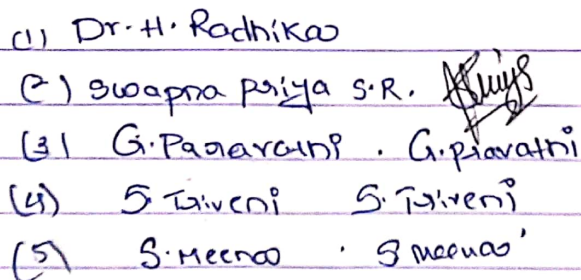 (1) Dr. H. Radhika
(2) Swapna Priya S.R.
(3) G. Paravathi . G. Paravathi
(4) S. Triveni S. Triveni
(5) S. Meena . S Meena